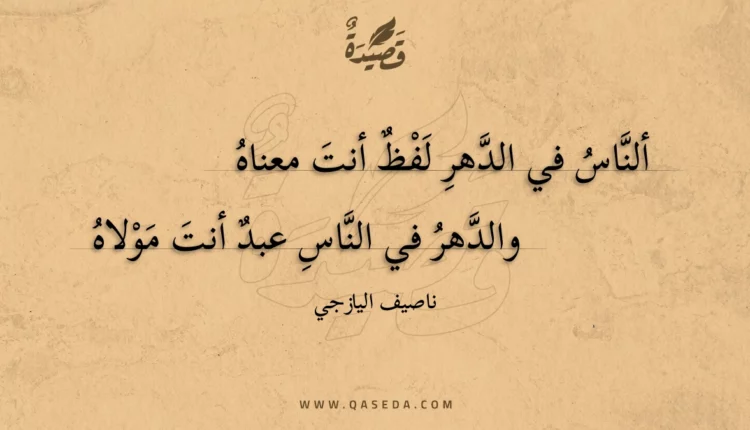 قَصِيدَةٌ
ألنَّاسُ في الدَّهرِ لَفْظٌ أنتَ معناهُ
والدَّهرُ في النَّاسِ عبدٌ أنتَ مَوْلاهُ
ناصيف اليازجي
WWW.QASEDA.COM